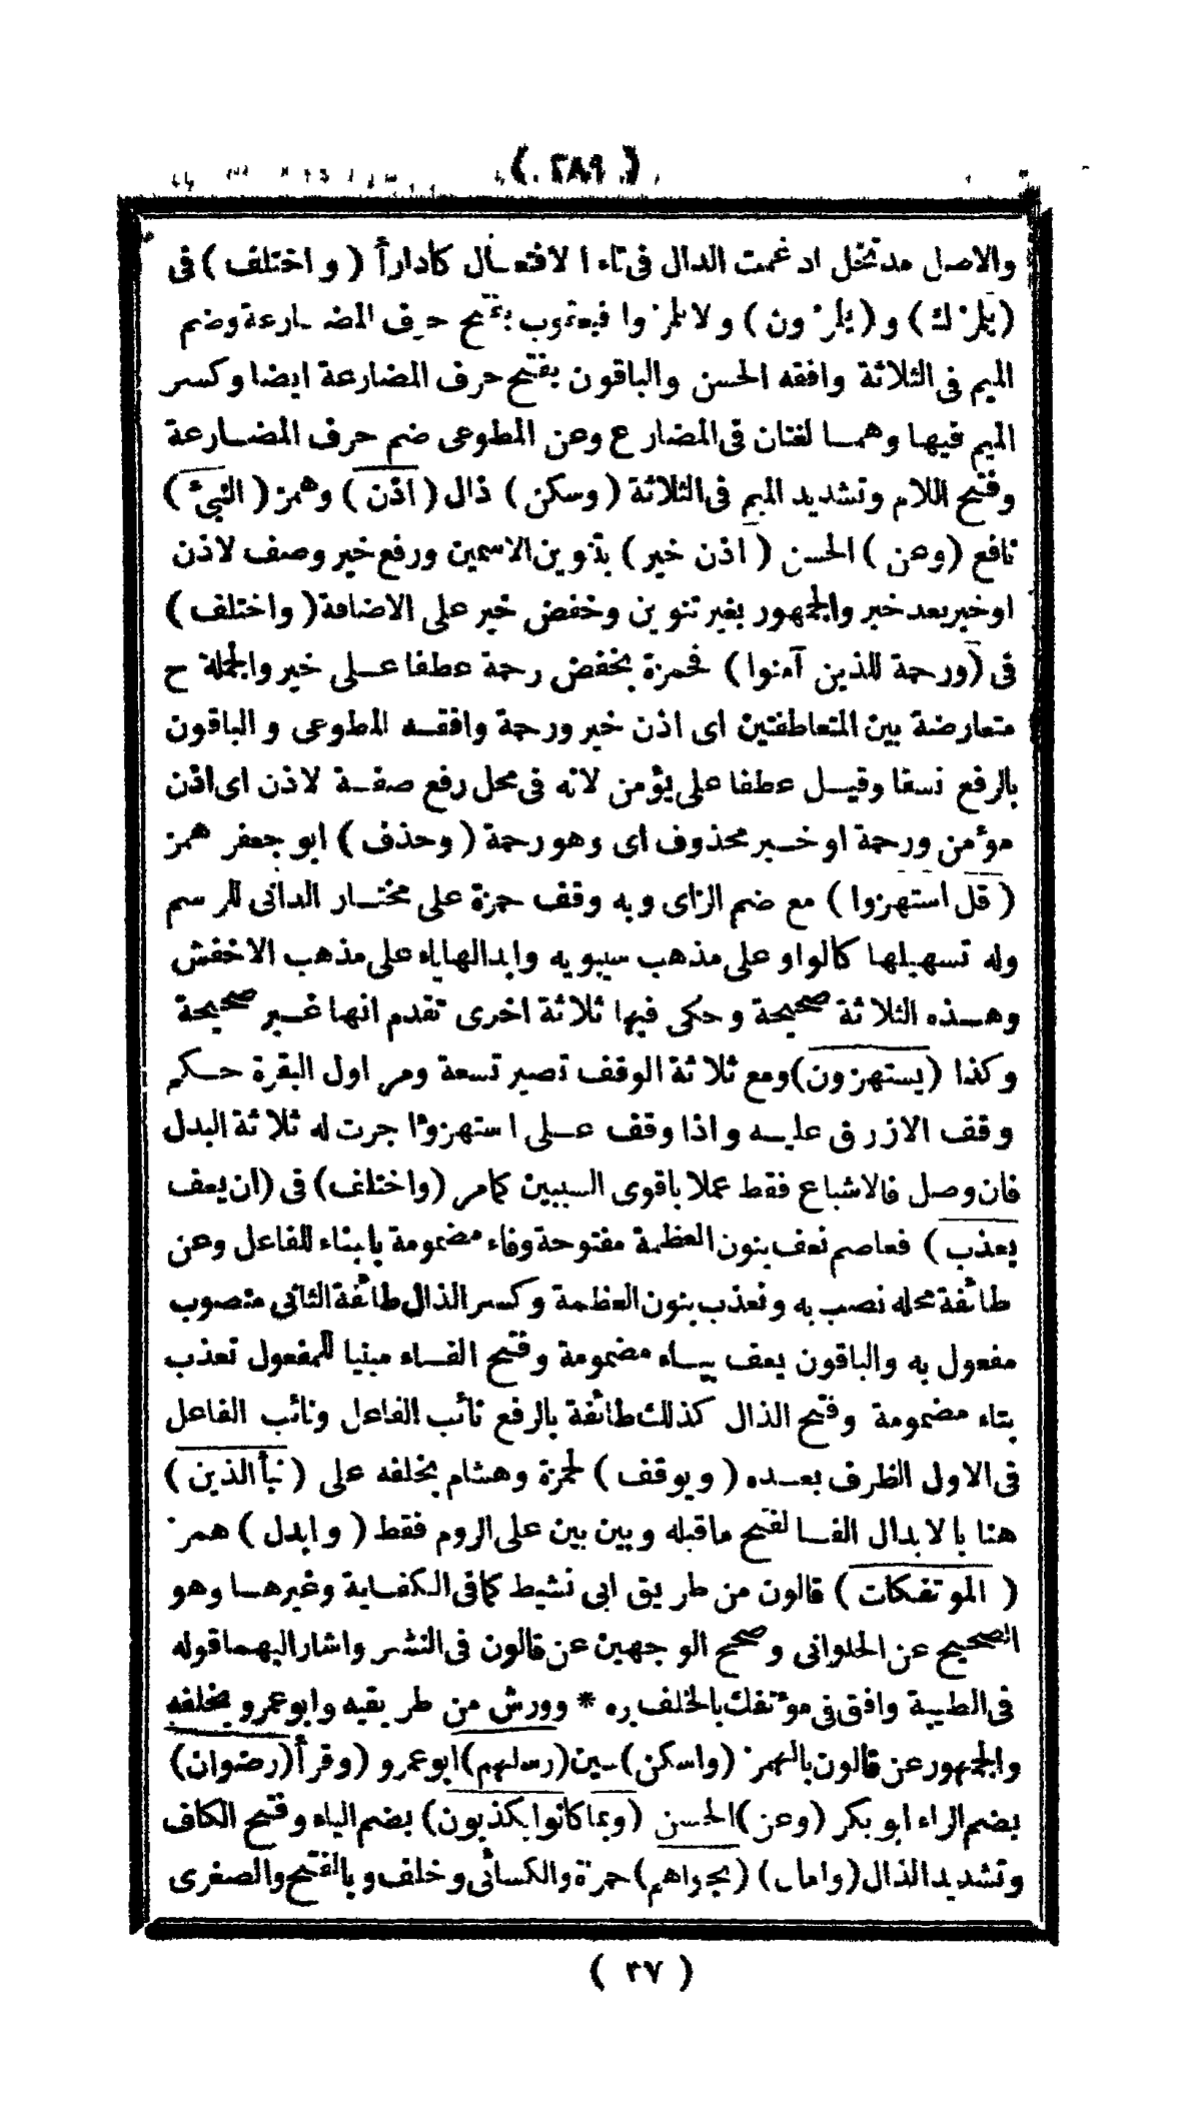 ( ٢٨٩ )
والاصل مدتخل ادغمت الدال فى تاء الافتعال كادارأ ( واختلف ) فى
( يلزك ) و ( يلزون ) ولا تلزوا فيعقوب بفتح حرف المضارعة وضم
الميم فى الثلاثة وافقه الحسن والباقون بفتح حرف المضارعة ايضا وكسر
الميم فيها وهما لغتان فى المضارع وعن المطوعى ضم حرف المضارعة
وفتح اللام وتشديد الميم فى الثلاثة ( وسكن ) ذال ( اذن ) وهمز ( النبىء )
نافع ( وعن ) الحسن ( اذن خير ) بتنوين الاسمين ورفع خير وصف لاذن
او خبر بعد خبر والجمهور بغير تنوين وخفض خير على الاضافة ( واختلف )
فى ( ورحمة للذين آمنوا ) فحمزة بخفض رحمة عطفا على خير والجملة ح
متعارضة بين المتعاطفتين اى اذن خير ورحمة وافقه المطوعى والباقون
بالرفع نسقا وقيل عطفا على يؤمن لانه فى محل رفع صفة لاذن اى اذن
مؤمن ورحمة او خبر محذوف اى وهو رحمة ( وحذف ) ابو جعفر همز
( قل استهزوا ) مع ضم الزاى وبه وقف حمزة على مختار الدانى للرسم
وله تسهيلها كالواو على مذهب سيبويه وابدالها ياء على مذهب الاخفش
وهذه الثلاثة صحيحة وحكى فيها ثلاثة اخرى تقدم انها غير صحيحة
وكذا ( يستهزون ) ومع ثلاثة الوقف تصير تسعة ومر اول البقرة حكم
وقف الازرق عليه واذا وقف على استهزوا جرت له ثلاثة البدل
فان وصل فالاشباع فقط عملا باقوى السببين كمامر ( واختلف ) فى ( ان يعف
يعذب ) فعاصم نعف بنون العظمة مفتوحة وفاء مضمومة بابناء للفاعل وعن
طائفة محله نصب به ونعذب بنون العظمة وكسر الذال طائفة الثانى منصوب
مفعول به والباقون يعف بياء مضمومة وفتح الفاء مبنيا للمفعول تعذب
بتاء مضمومة وفتح الذال كذلك طائفة بالرفع نائب الفاعل ونائب الفاعل
فى الاول الظرف بعده ( ويوقف ) لحمزة وهشام بخلفه على ( نبأ الذين )
هنا بالابدال الفا لفتح ماقبله وبين بين على الروم فقط ( وابدل ) همز
( الموتفكات ) قالون من طريق ابى نشيط كمافى الكفاية وغيرها وهو
الصحيح عن الحلوانى وصحح الوجهين عن قالون فى النشر واشار اليهما قوله
فى الطيبة وافق فى مؤتفك بالخلف بره * وورش من طريقيه وابوعمرو بخلفه
والجمهور عن قالون بالهمز ( واسكن ) سين ( رسلهم ) ابوعمرو ( وقرأ ( رضوان )
بضم الراء ابو بكر ( وعن ) الحسن ( وبما كانوا يكذبون ) بضم الياء وفتح الكاف
وتشديد الذال ( وامال ) ( نجواهم ) حمزة والكسائى وخلف وبالفتح والصغرى
( ٣٧ )